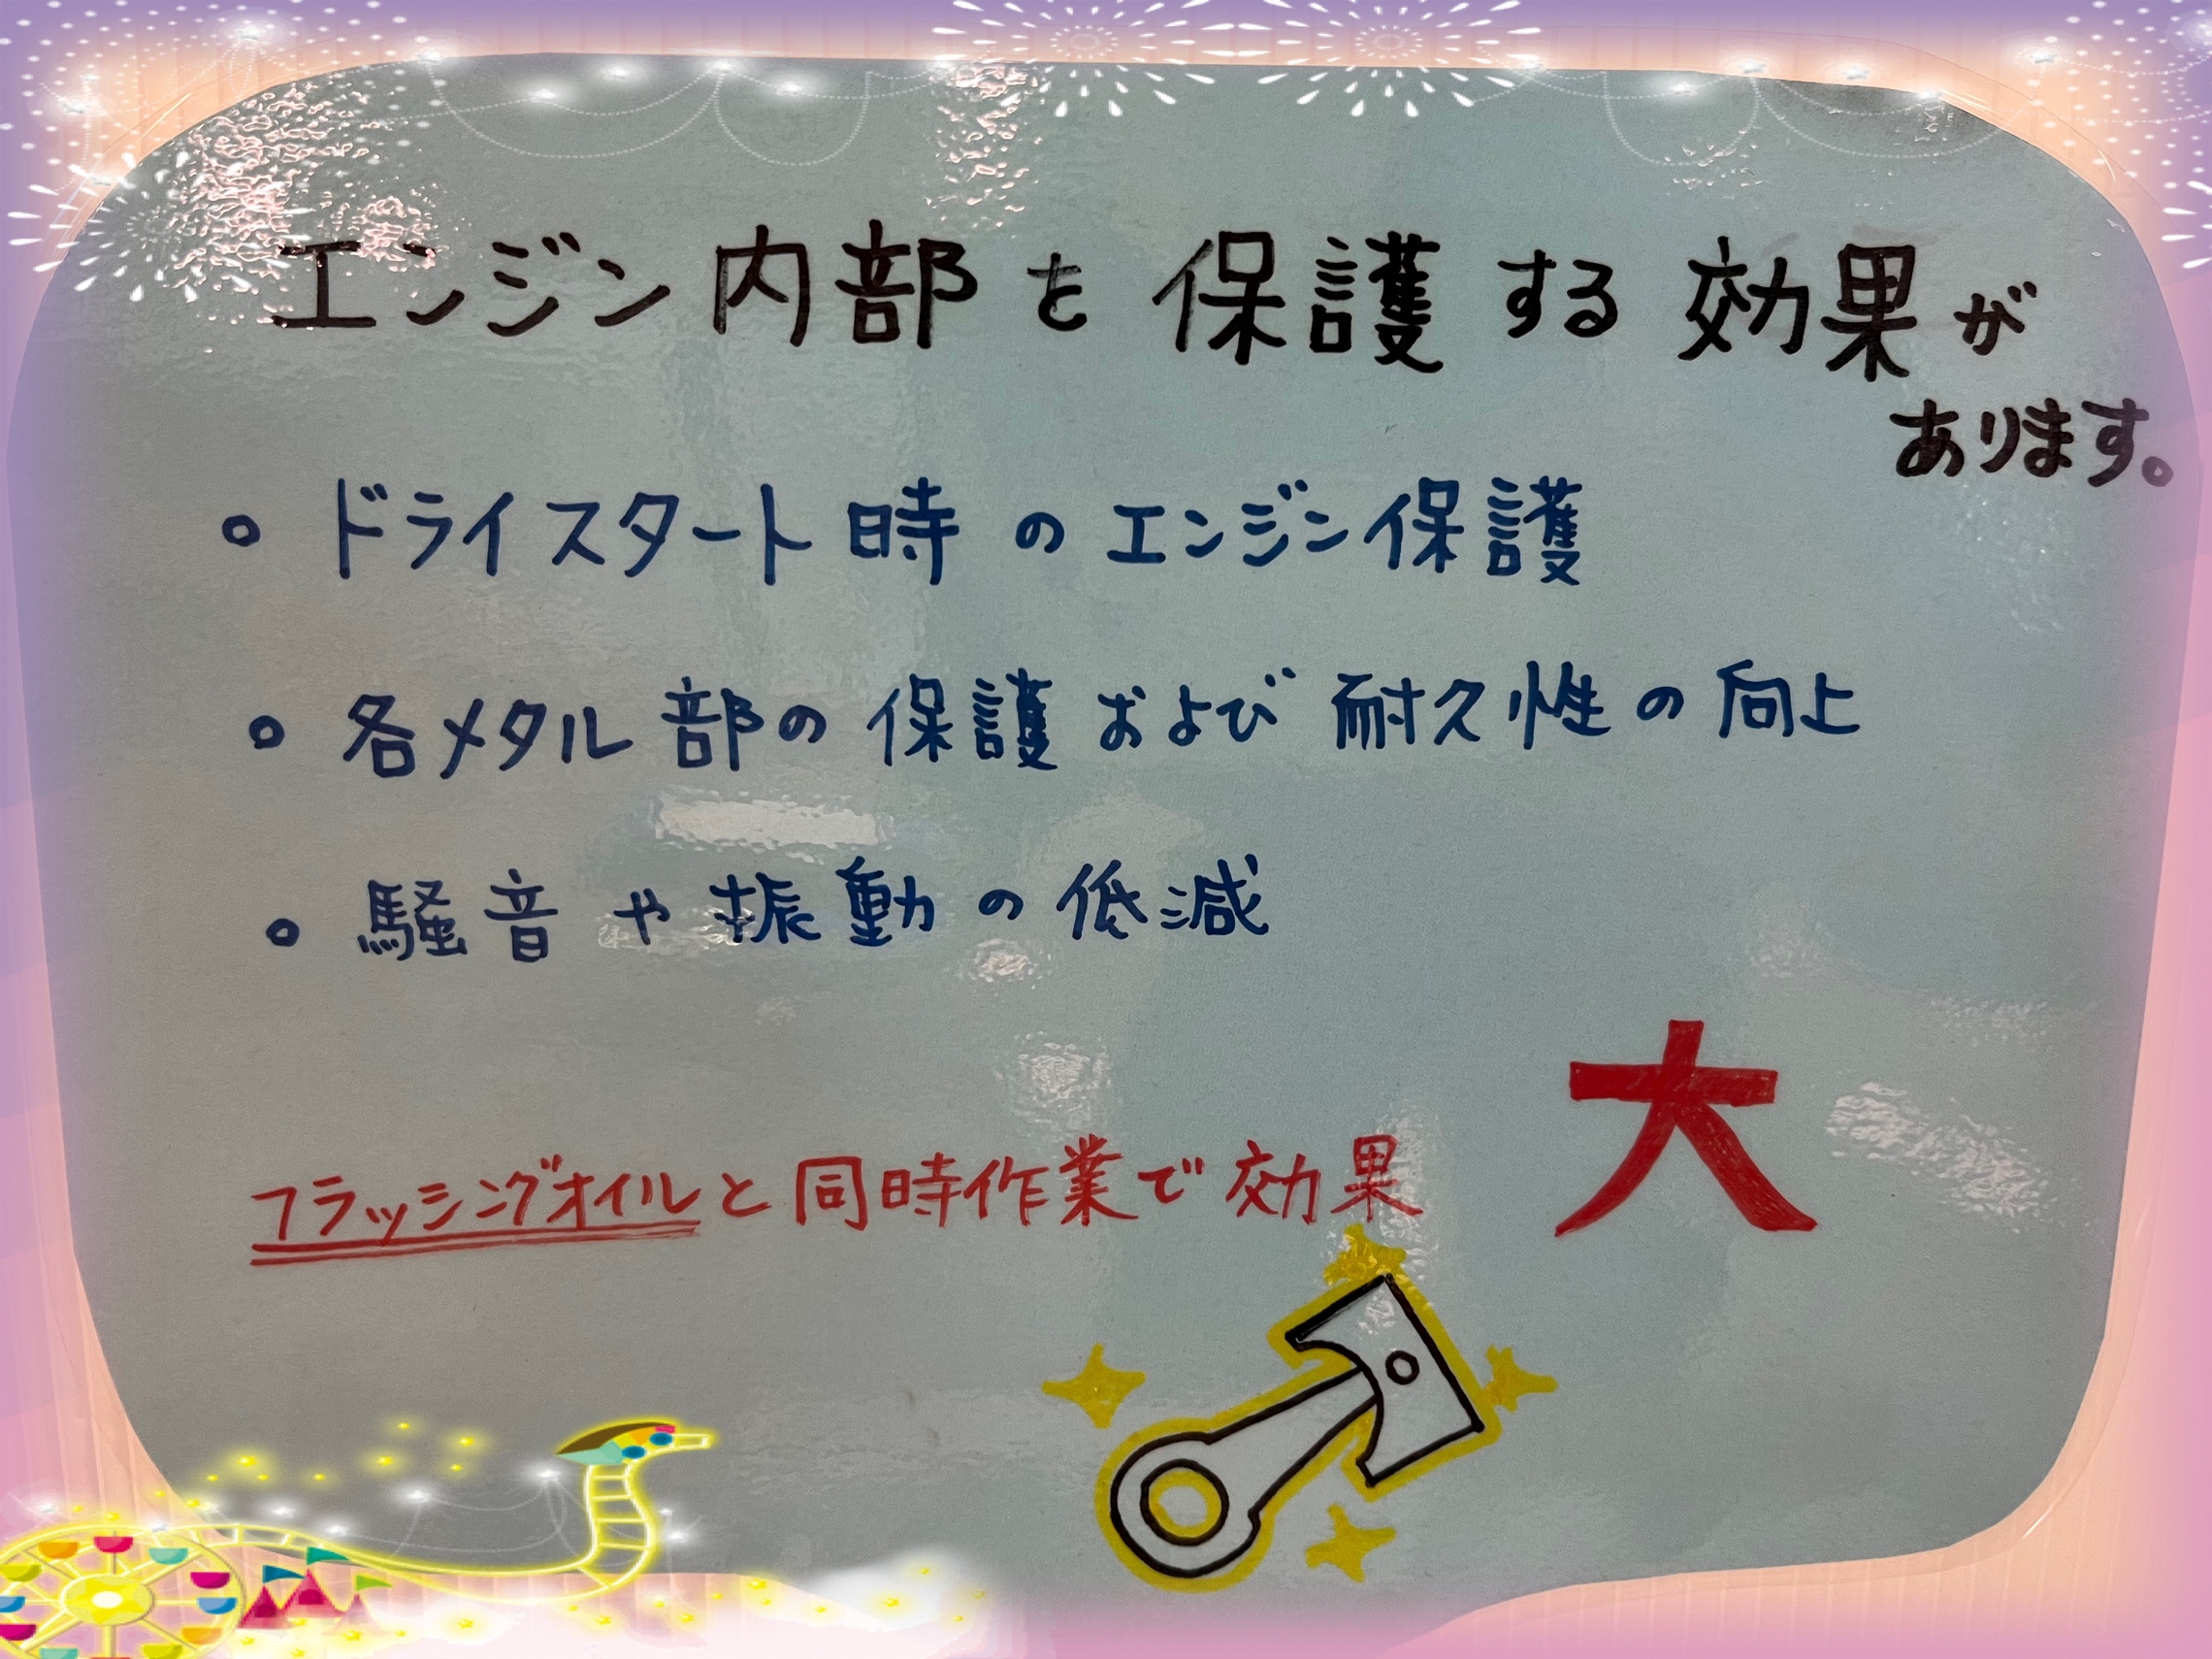 エンジン内部を保護する効果が
あります。
・ドライスタート時のエンジン保護
・各メタル部の保護および耐久性の向上
・騒音や振動の低減
フラッシングオイルと同時作業で効果 大